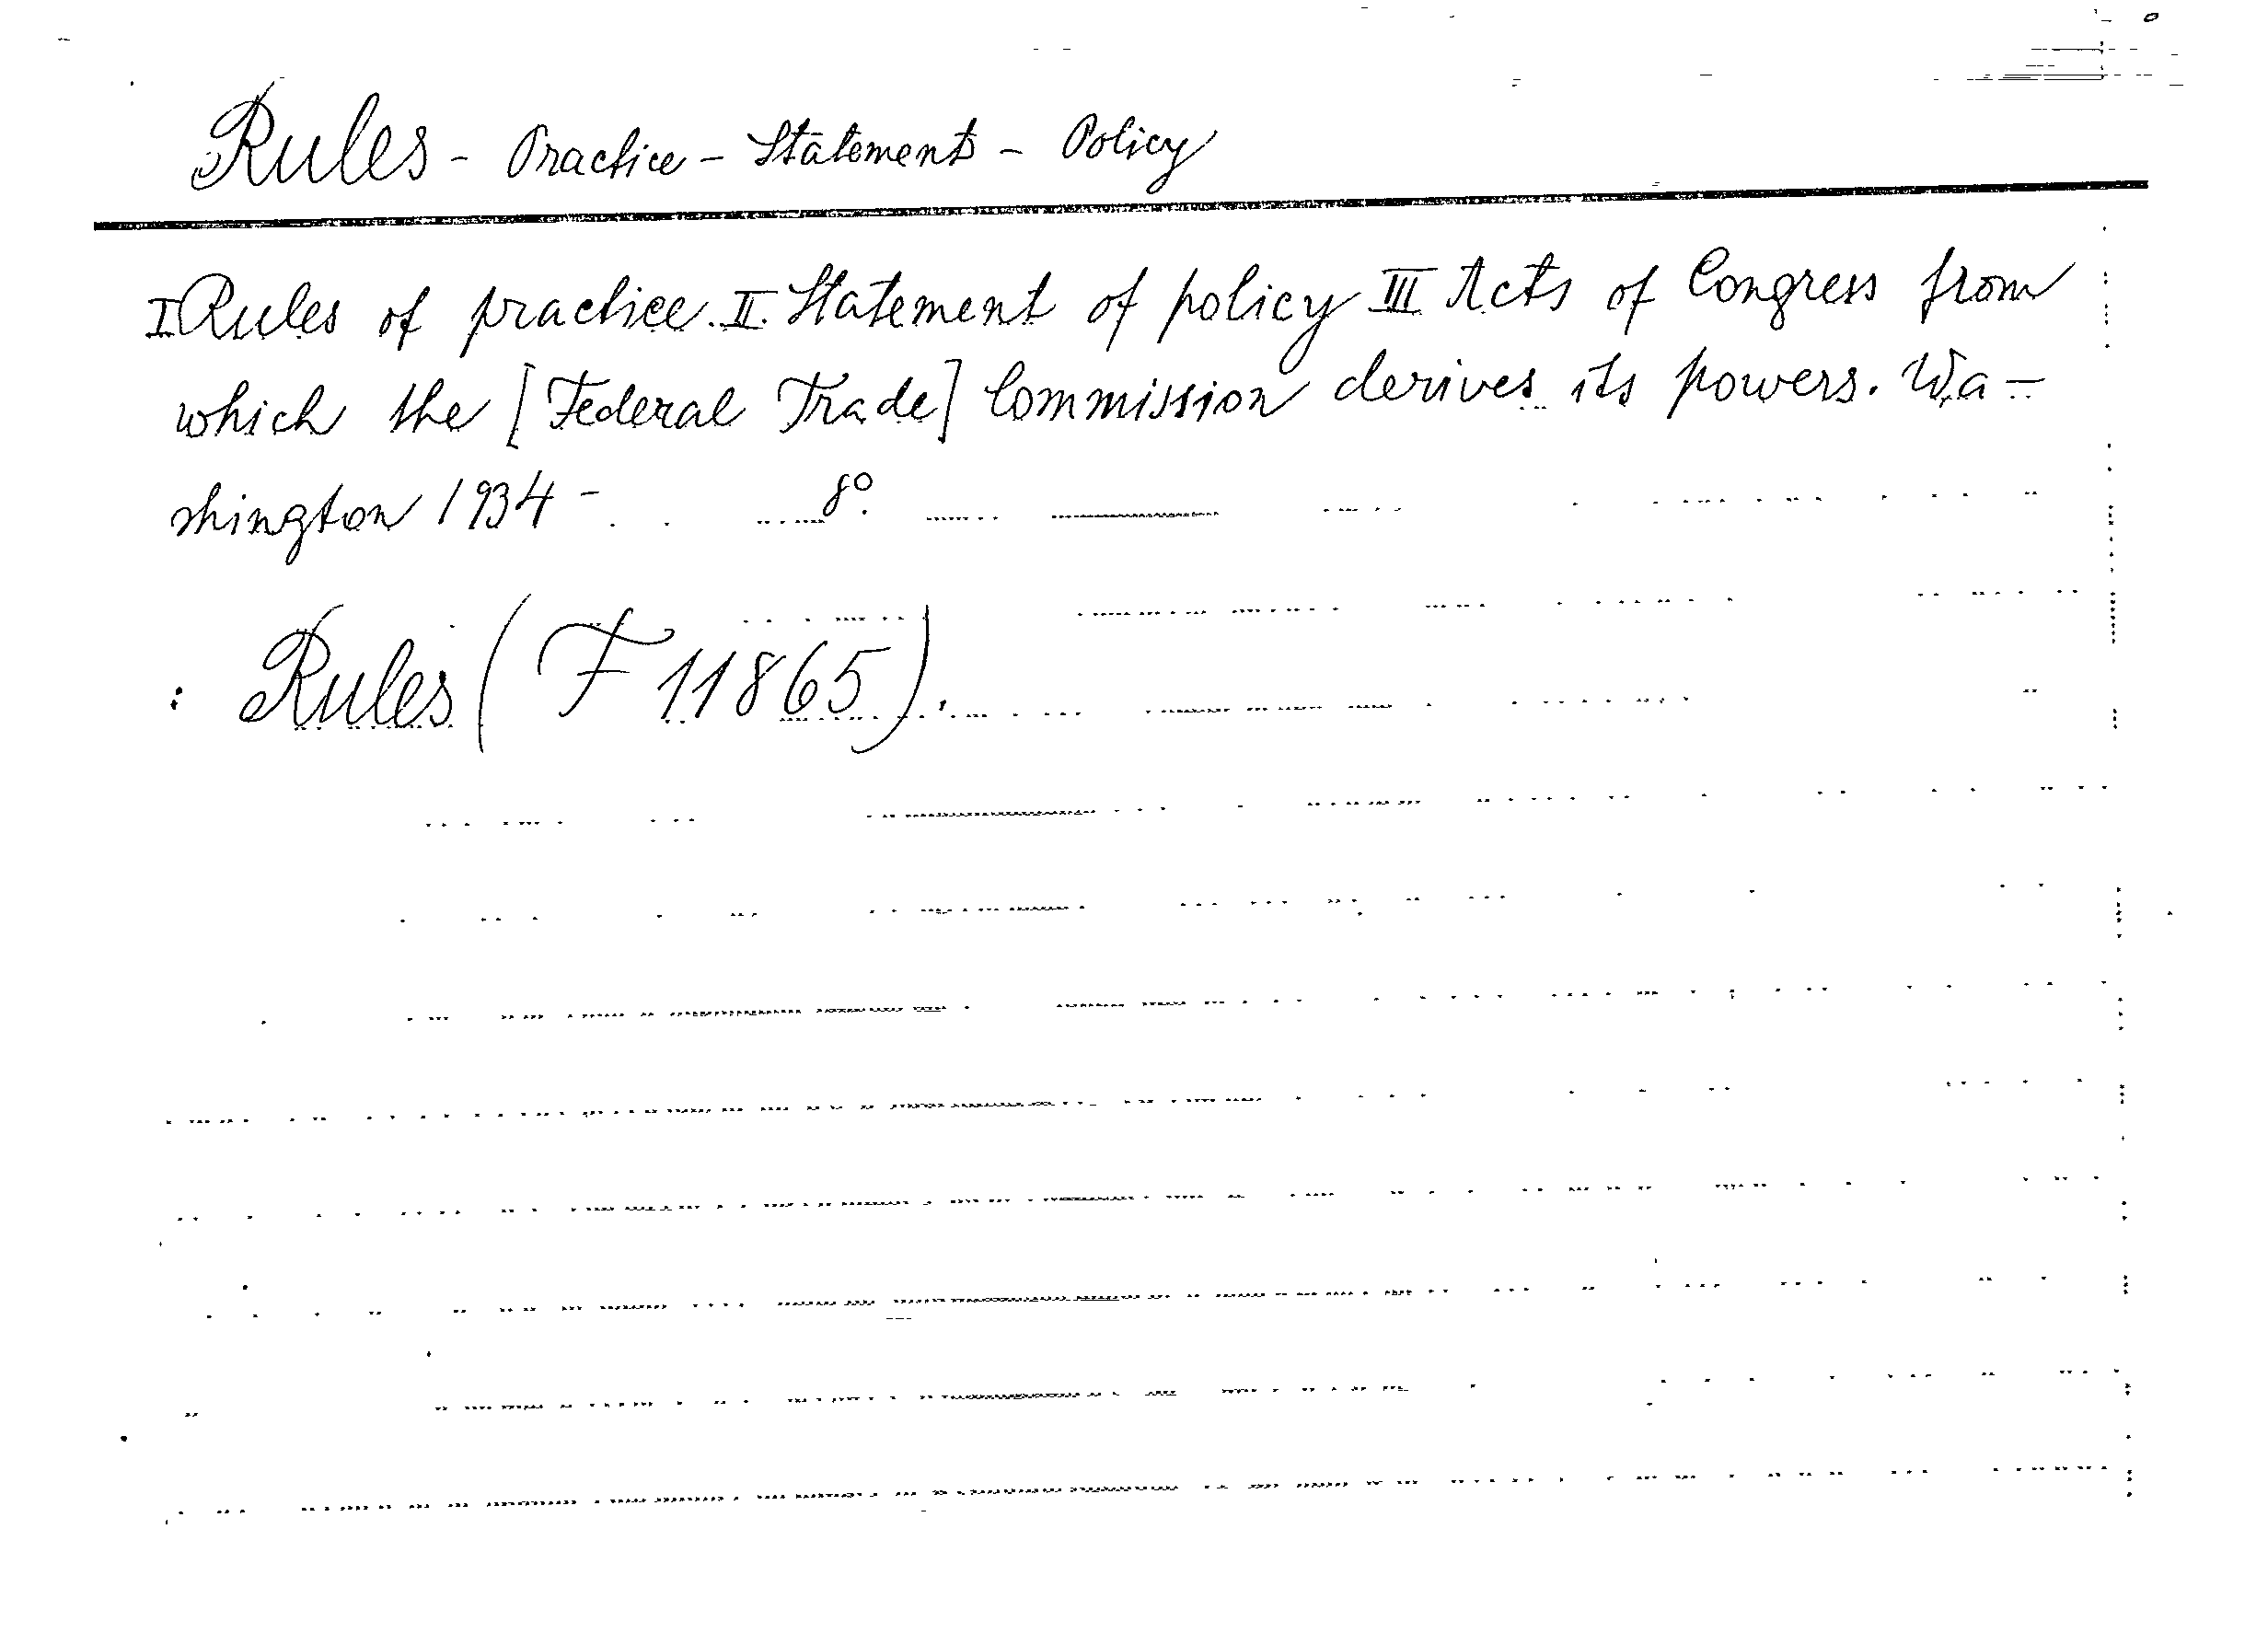 Rules - Practice - Statement - Policy
I Rules of practice. II. Statement of policy III Acts of Congress from
which the [Federal Trade] Commission derives its powers. Wa-
shington 1934 - 8°.
: Rules (F 11865).